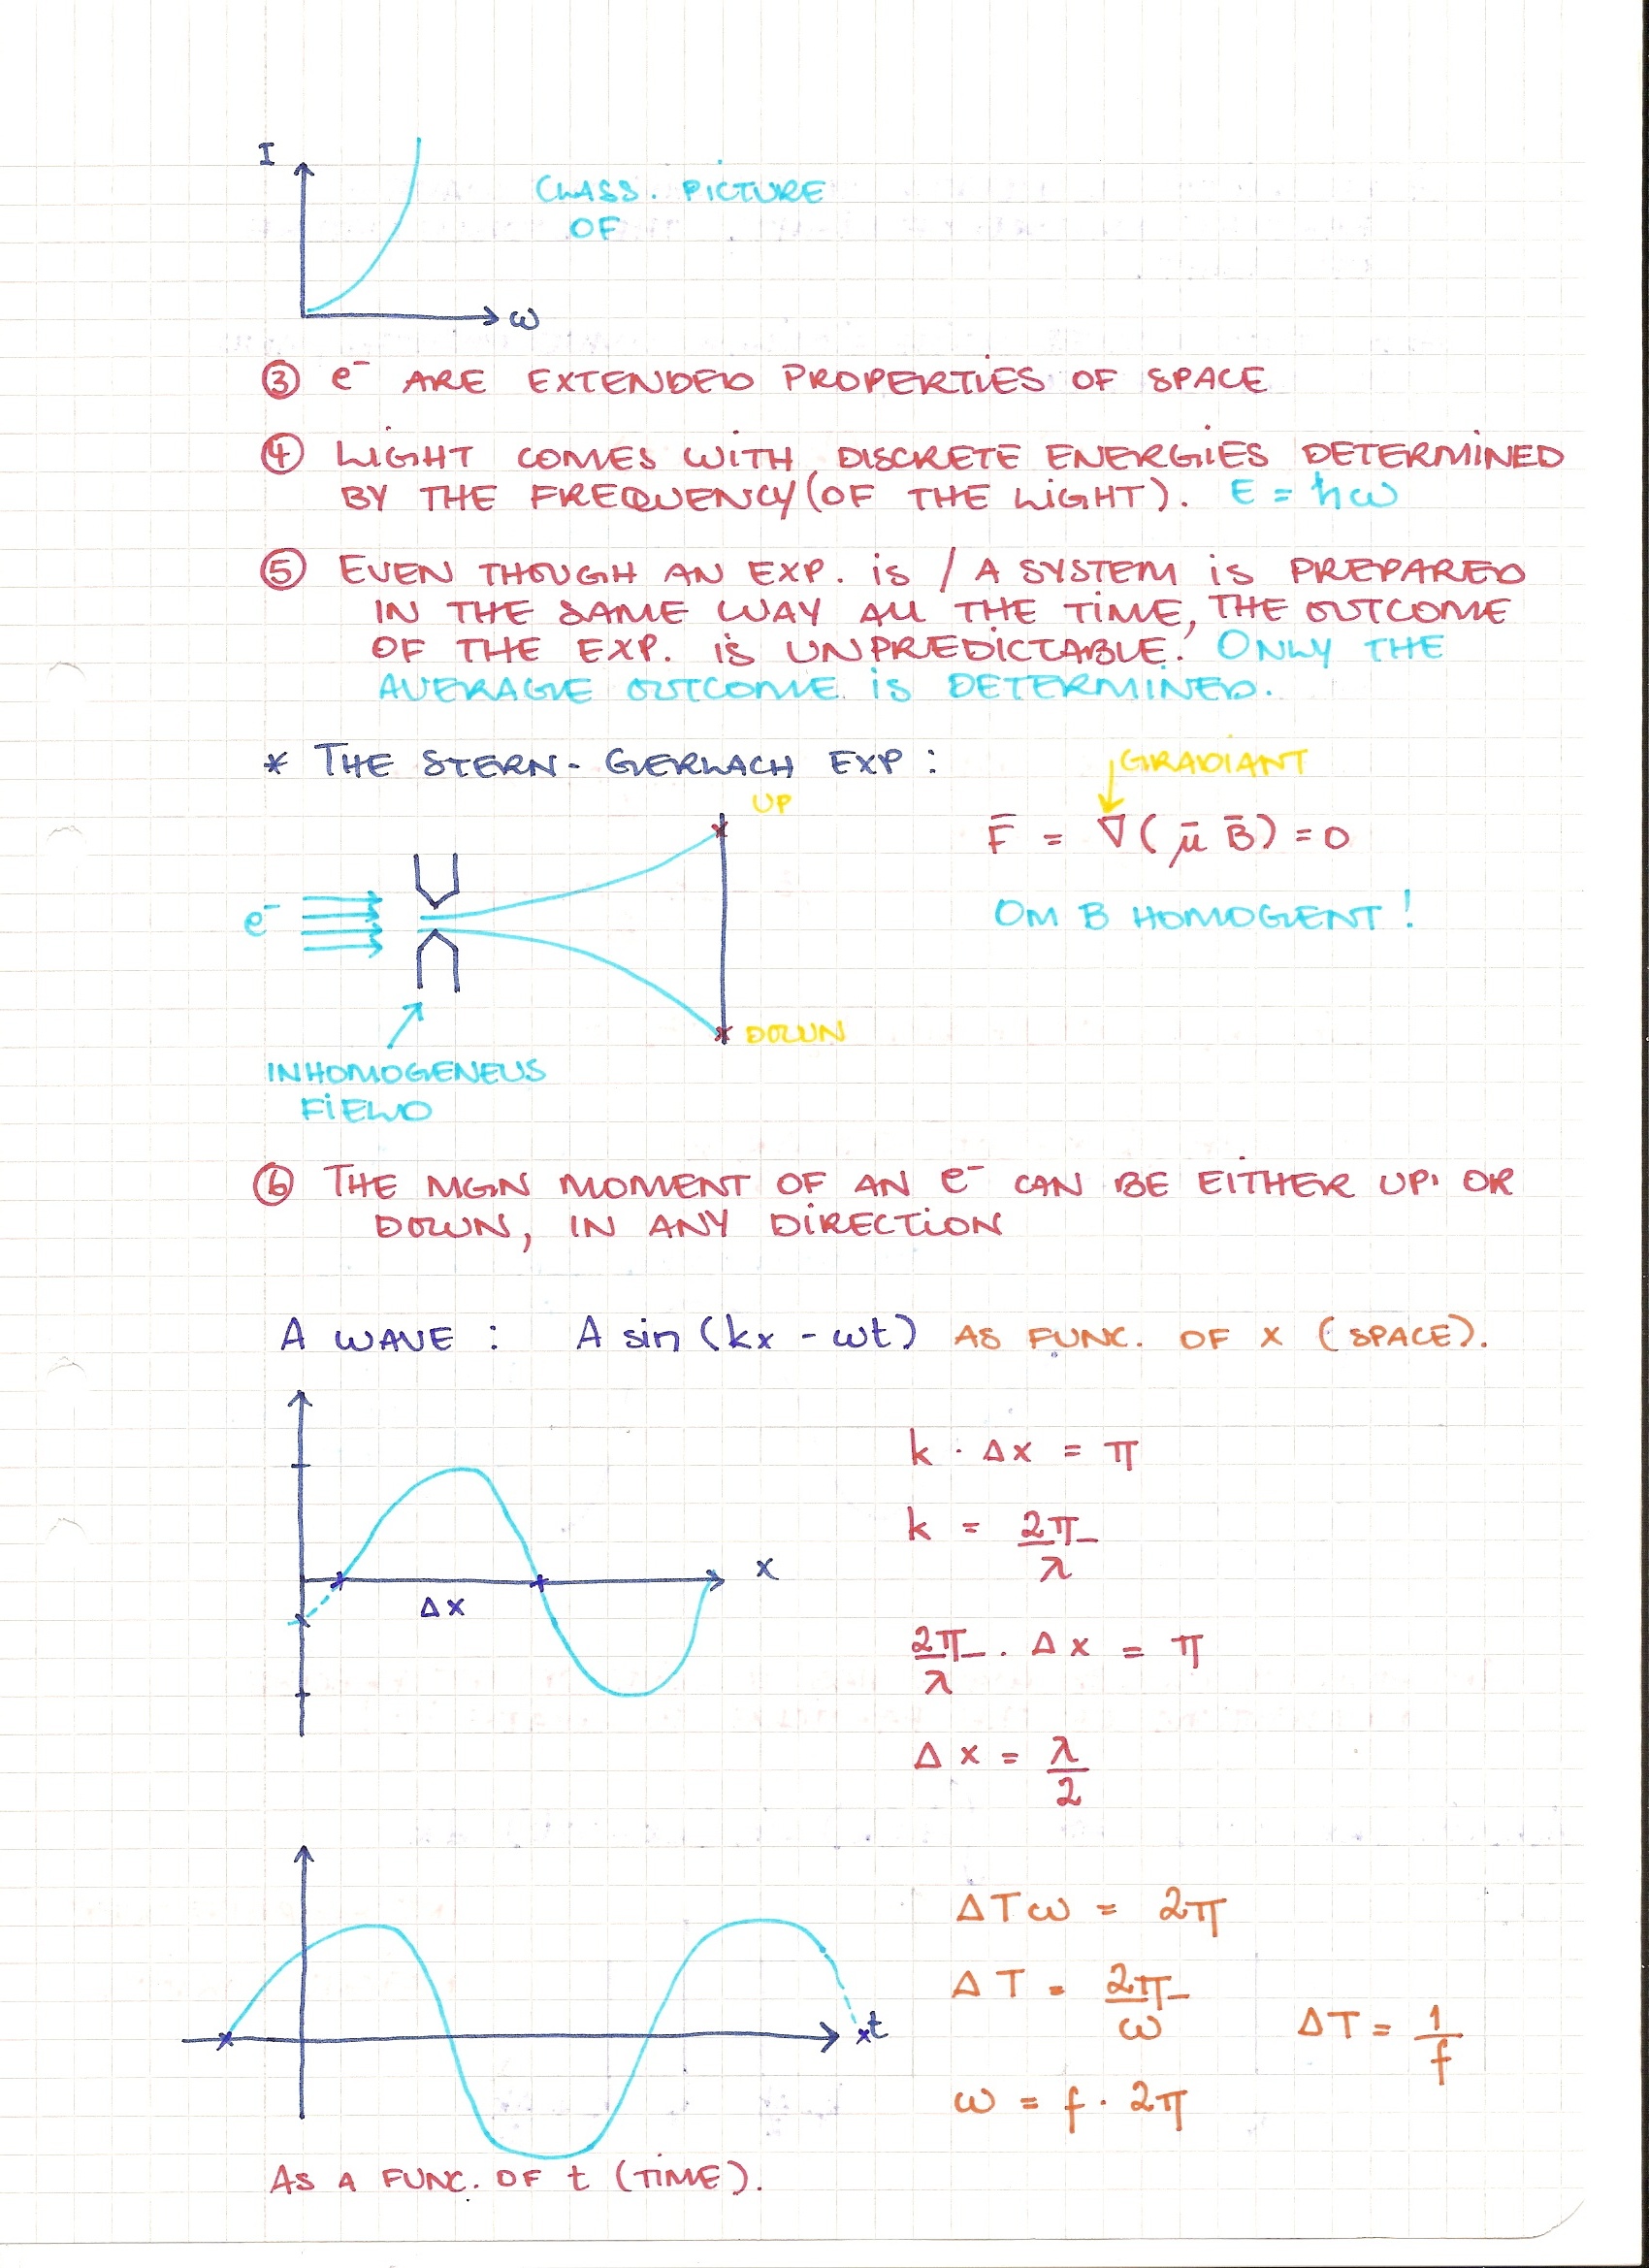 I
CLASS. PICTURE
OF
ω
③ e⁻ ARE EXTENDED PROPERTIES OF SPACE
④ LIGHT COMES WITH DISCRETE ENERGIES DETERMINED
BY THE FREQUENCY (OF THE LIGHT). E = ħω
⑤ EVEN THOUGH AN EXP. is / A SYSTEM is PREPARED
IN THE SAME WAY ALL THE TIME, THE OUTCOME
OF THE EXP. is UNPREDICTABLE. ONLY THE
AVERAGE OUTCOME is DETERMINED.
* THE STERN-GERLACH EXP :
GRADIANT
UP
F̄ = ∇(μ̄ B̄) = 0
e⁻
OM B HOMOGENT!
DOWN
INHOMOGENEUS
FIELD
⑥ THE MGN MOMENT OF AN e⁻ CAN BE EITHER UP OR
DOWN, IN ANY DIRECTION
A WAVE : A sin (kx - ωt) AS FUNC. OF x (SPACE).
k · Δx = π
k = 2π/λ
x
Δx
2π/λ · Δx = π
Δx = λ/2
ΔTω = 2π
ΔT = 2π/ω
ΔT = 1/f
t
ω = f · 2π
AS A FUNC. OF t (TIME).